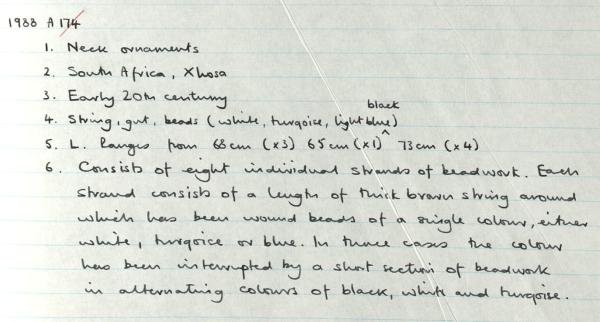 1988 A 174
1. Neck ornaments
2. South Africa, Xhosa
3. Early 20th century
black
4. String, gut, beads (white, turqoise, light blue^)
5. L. Ranges from 68cm (x3) 65cm (x1) 73cm (x4)
6. Consists of eight individual strands of beadwork. Each
strand consists of a length of thick brown string around
which has been wound beads of a single colour, either
white, turqoise or blue. In three cases the colour
has been interrupted by a short section of beadwork
in alternating colours of black, white and turqoise.